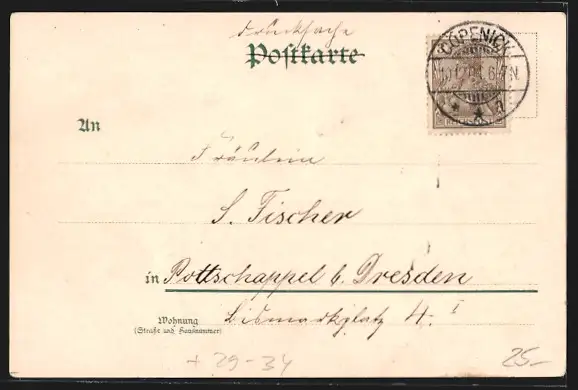 Drucksache
Postkarte
CÖPENICK
An
Fräulein
S. Fischer
in Pottschappel b. Dresden
Wohnung
(Straße und Hausnummer)
Bismarkplatz 4. I
+ 29-34
25.-